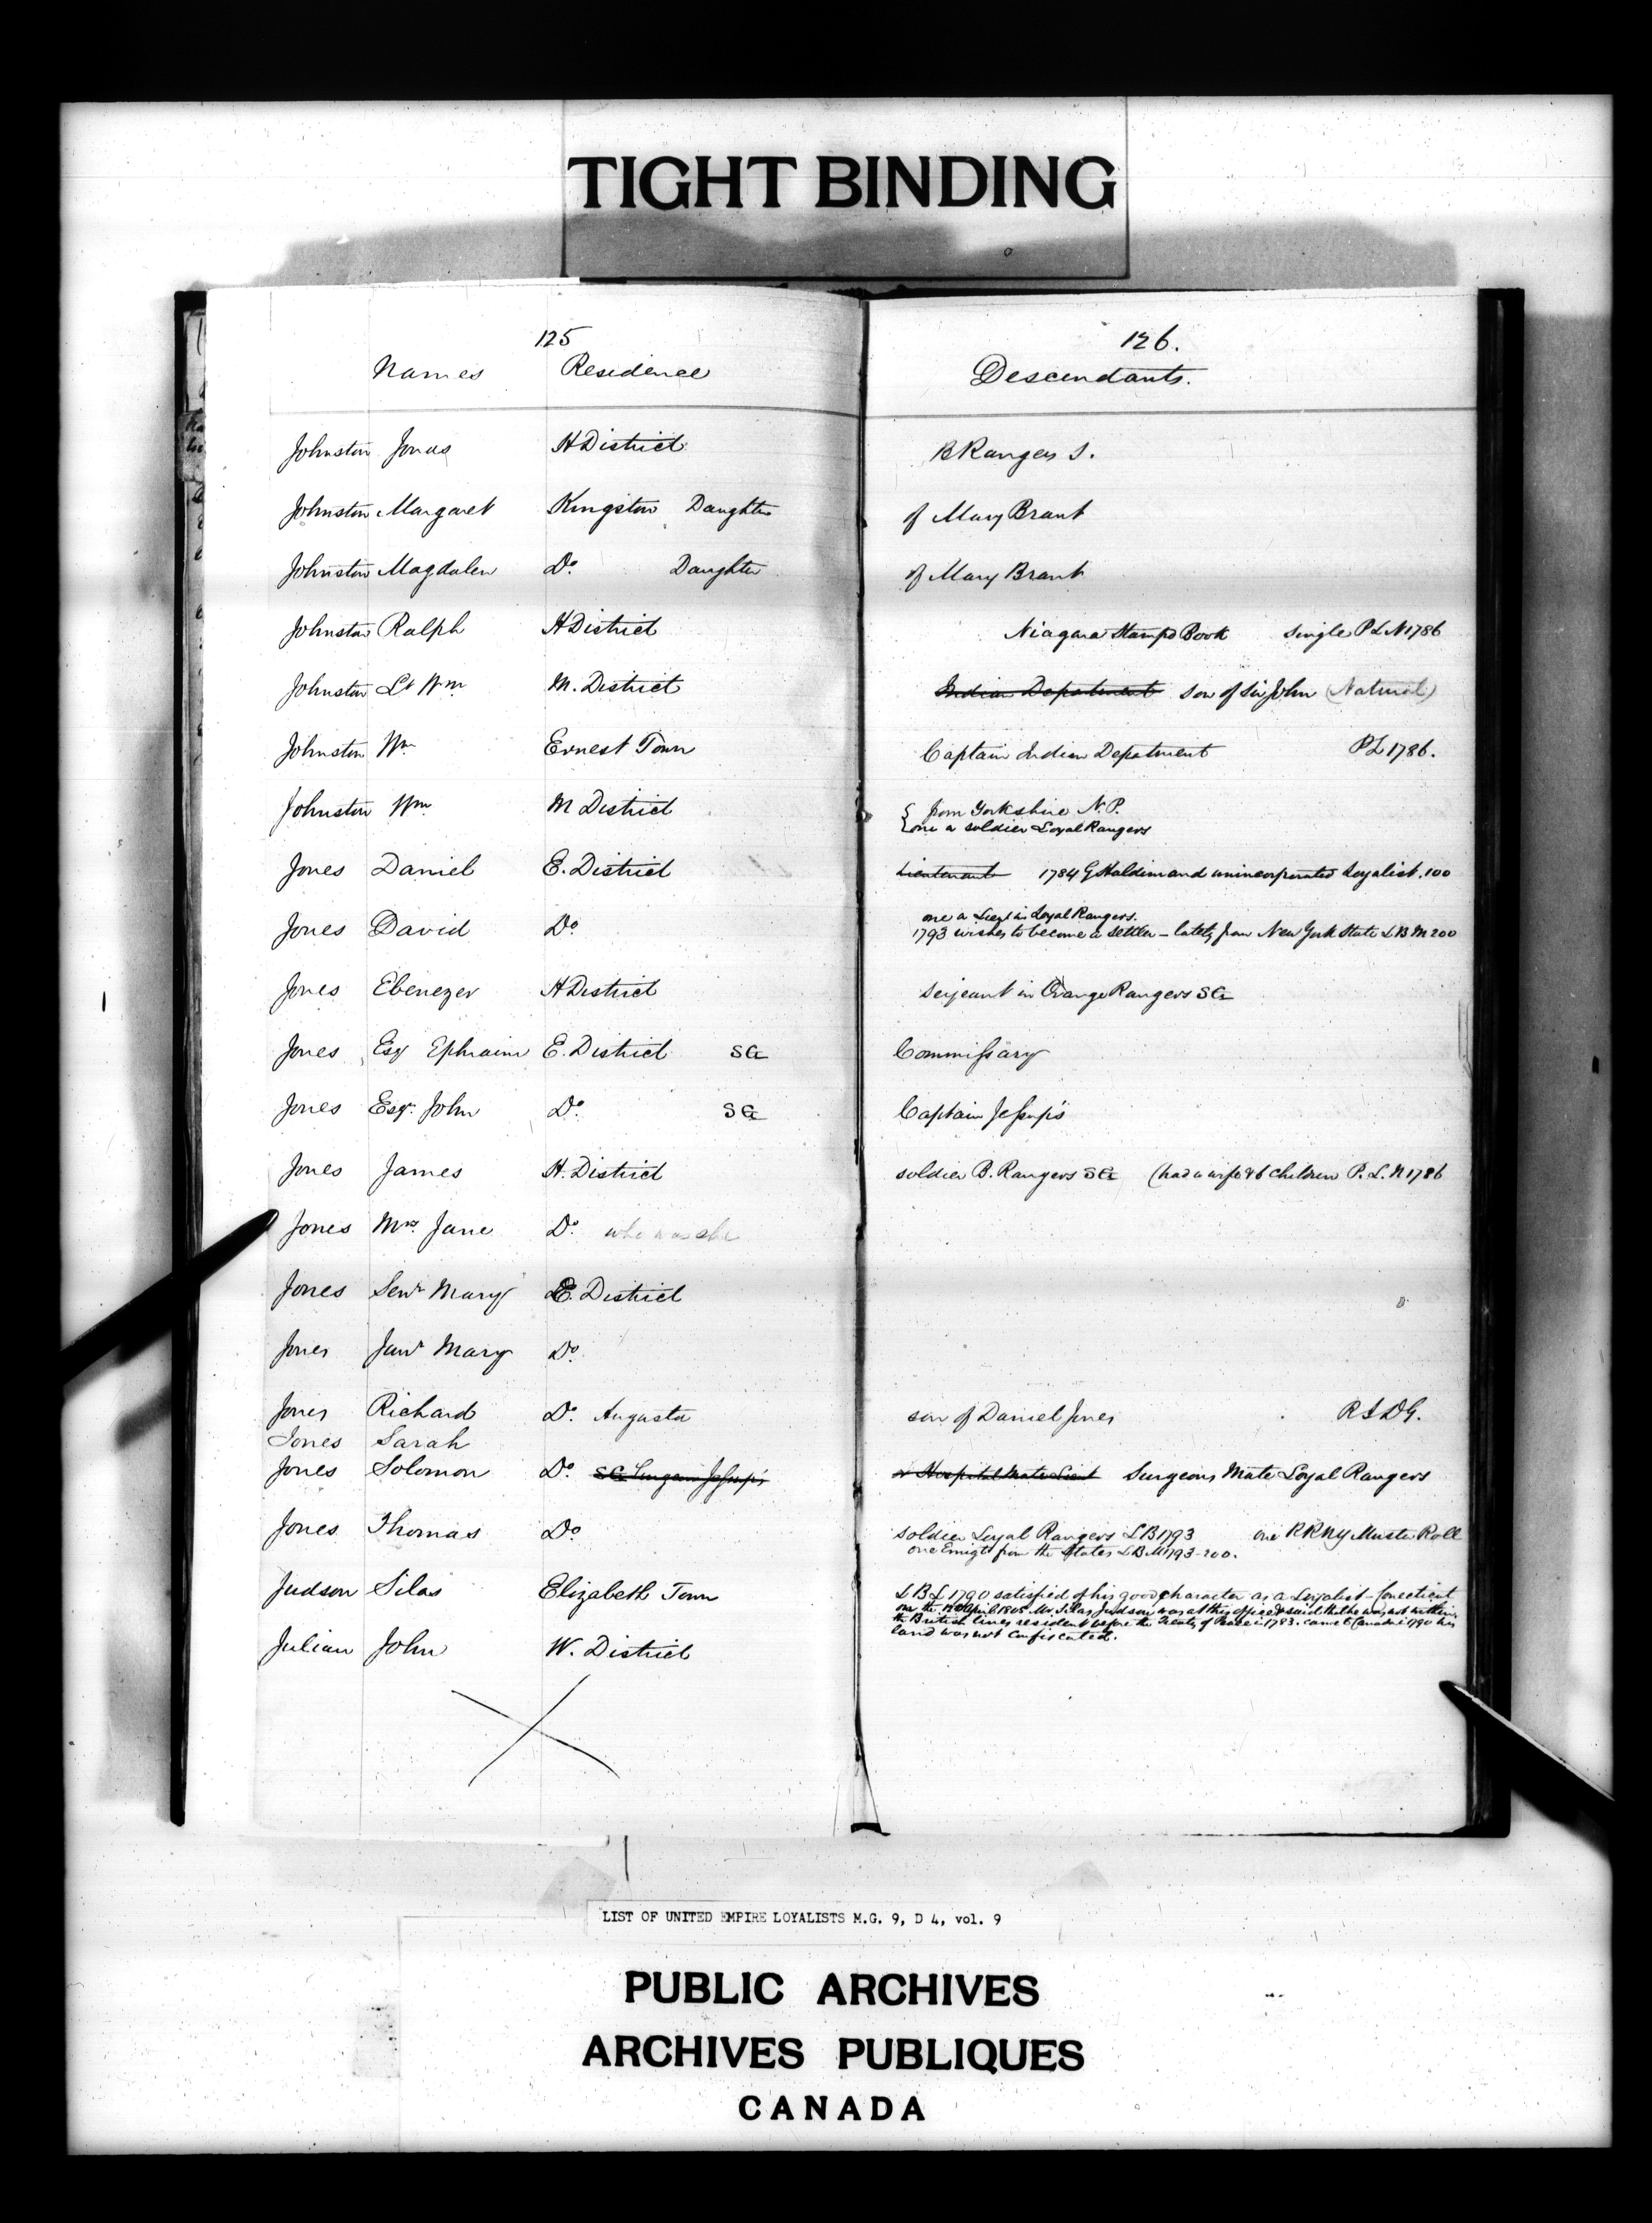 TIGHT BINDING
125
Names Residence
126.
Descendants.
Johnston Jonas H District B Rangers S.
Johnston Margaret Kingston Daughter of Mary Brant
Johnston Magdalen Do. Daughter of Mary Brant
Johnston Ralph H District Niagara Stamped Book single P L N 1786
Johnston Lt Wm M. District Indian Department son of Sir John (Natural)
Johnston Wm Ernest Town Captain Indian Department P L 1786.
Johnston Wm M District { from Yorkshire N.P.
{ one a soldier Loyal Rangers
Jones Daniel E. District Lieutenant 1784 G Haldimand unincorporated Loyalist. 100
Jones David Do one a Sergt in Loyal Rangers.
1793 wishes to become a settler - lately from New York State L B M 200
Jones Ebenezer H District Serjeant in Orange Rangers SG
Jones Esqr Ephraim E. District SG Commissary
Jones Esqr. John Do. SG Captain Jessup's
Jones James H. District soldier B. Rangers SG (had a wife & 6 children P. L. N 1786
Jones Mrs. Jane Do. who was she
Jones Senr Mary E. District
Jones Junr Mary Do.
Jones Richard Do. Augusta son of Daniel Jones R I D G.
Jones Sarah
Jones Solomon Do. SG Surgeon Jessup's or Hospital Mate Lieut Surgeons Mate Loyal Rangers
Jones Thomas Do soldier Loyal Rangers L B 1793 one RRNY Muster Roll
one Emigt from the States L B M 1793-200.
Judson Silas Elizabeth Town L B L 1790 satisfied of his good character as a Loyalist - Conecticut
on the April 1808 Mr. Silas Judson was at this office & said that he was not within
the British lines resident before the Treaty of Peace in 1783. came to Canada in 1790 his
land was not confiscated.
Julian John W. District
LIST OF UNITED EMPIRE LOYALISTS M.G. 9, D 4, vol. 9
PUBLIC ARCHIVES
ARCHIVES PUBLIQUES
CANADA